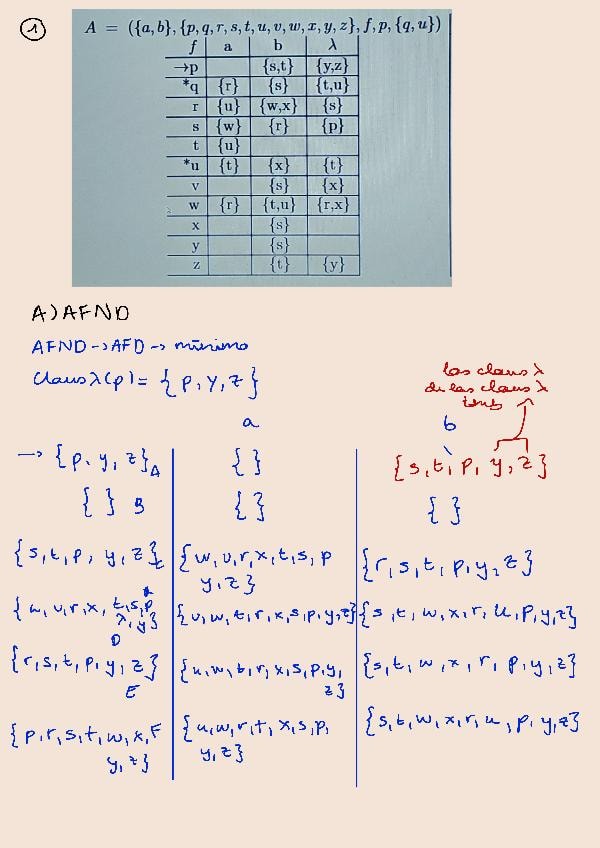 ① A = ({a,b}, {p,q,r,s,t,u,v,w,x,y,z}, f, p, {q,u})
f a b λ
→p {s,t} {y,z}
*q {r} {s} {t,u}
r {u} {w,x} {s}
s {w} {r} {p}
t {u}
*u {t} {x} {t}
v {s} {x}
w {r} {t,u} {r,x}
x {s}
y {s}
z {t} {y}
A) AFND
AFND → AFD → mínimo
Claus λ(p) = {p, y, z}
las claus λ
de las claus λ
a b
→ {p, y, z} A {} {s, t, p, y, z}
{} B {} {}
{s, t, p, y, z} {w, u, r, x, t, s, p {r, s, t, p, y, z}
y, z}
{u, w, t, r, x, s, p, y, z} {s, t, w, x, r, u, p, y, z}
D
{r, s, t, p, y, z} {u, w, t, r, x, s, p, y, {s, t, w, x, r, p, y, z}
E z}
{p, r, s, t, w, x, F {u, w, r, t, x, s, p, {s, t, w, x, r, u, p, y, z}
y, z} y, z}